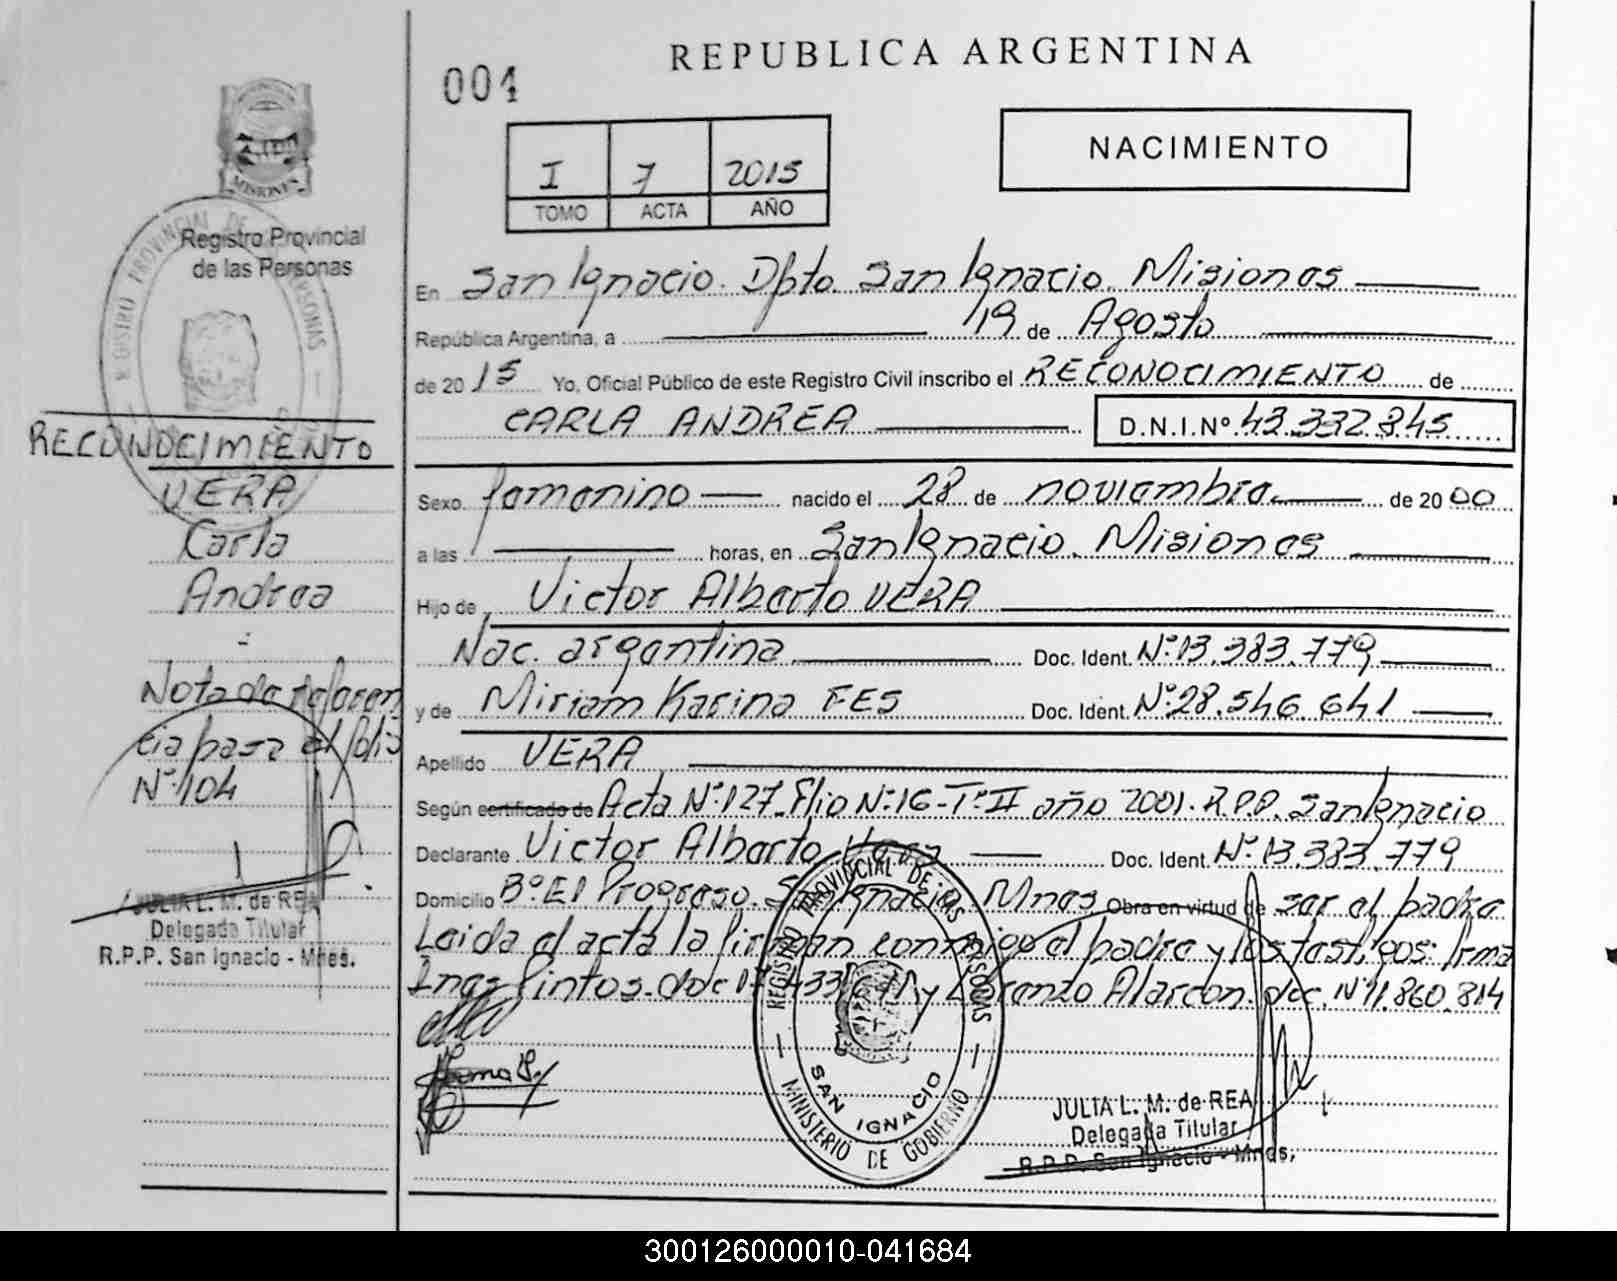 004
REPUBLICA ARGENTINA
NACIMIENTO
I 7 2015
TOMO ACTA AÑO
MISIONES
Registro Provincial
de las Personas
REGISTRO PROVINCIAL DE PERSONAS
En San Ignacio. Dpto. San Ignacio. Misiones
República Argentina, a 19 de Agosto
de 2015 Yo, Oficial Público de este Registro Civil inscribo el RECONOCIMIENTO de
CARLA ANDREA D.N.I.Nº 43.332.845
Sexo femenino nacido el 28 de noviembre de 2000
a las horas, en San Ignacio. Misiones
Hijo de Victor Alberto VERA
Nac. argentina Doc. Ident. Nº 13.383.779
y de Miriam Karina FES Doc. Ident. Nº 28.546.641
Apellido VERA
Según certificado de Acta Nº 127. Flio Nº 16-Tº II año 2001. R.P.P. San Ignacio
Declarante Victor Alberto Vera Doc. Ident. Nº 13.383.779
Domicilio Bº El Progreso. San Ignacio. Mnes Obra en virtud de ser el padre
Leida el acta la firman conmigo el padre y los testigos: Irma
Ines Pintos. doc y Lorenzo Alarcon. doc. Nº 11.860.814
Irma P.
RECONOCIMIENTO
VERA
Carla
Andrea
Nota de referen
cia pasa al folio
Nº 104
JULIA L. M. de REA
Delegada Titular
R.P.P. San Ignacio - Mnes.
REGISTRO PROVINCIAL DE LAS PERSONAS
SAN IGNACIO
MINISTERIO DE GOBIERNO
JULIA L. M. de REA
Delegada Titular
R.P.P. San Ignacio - Mnes.
300126000010-041684